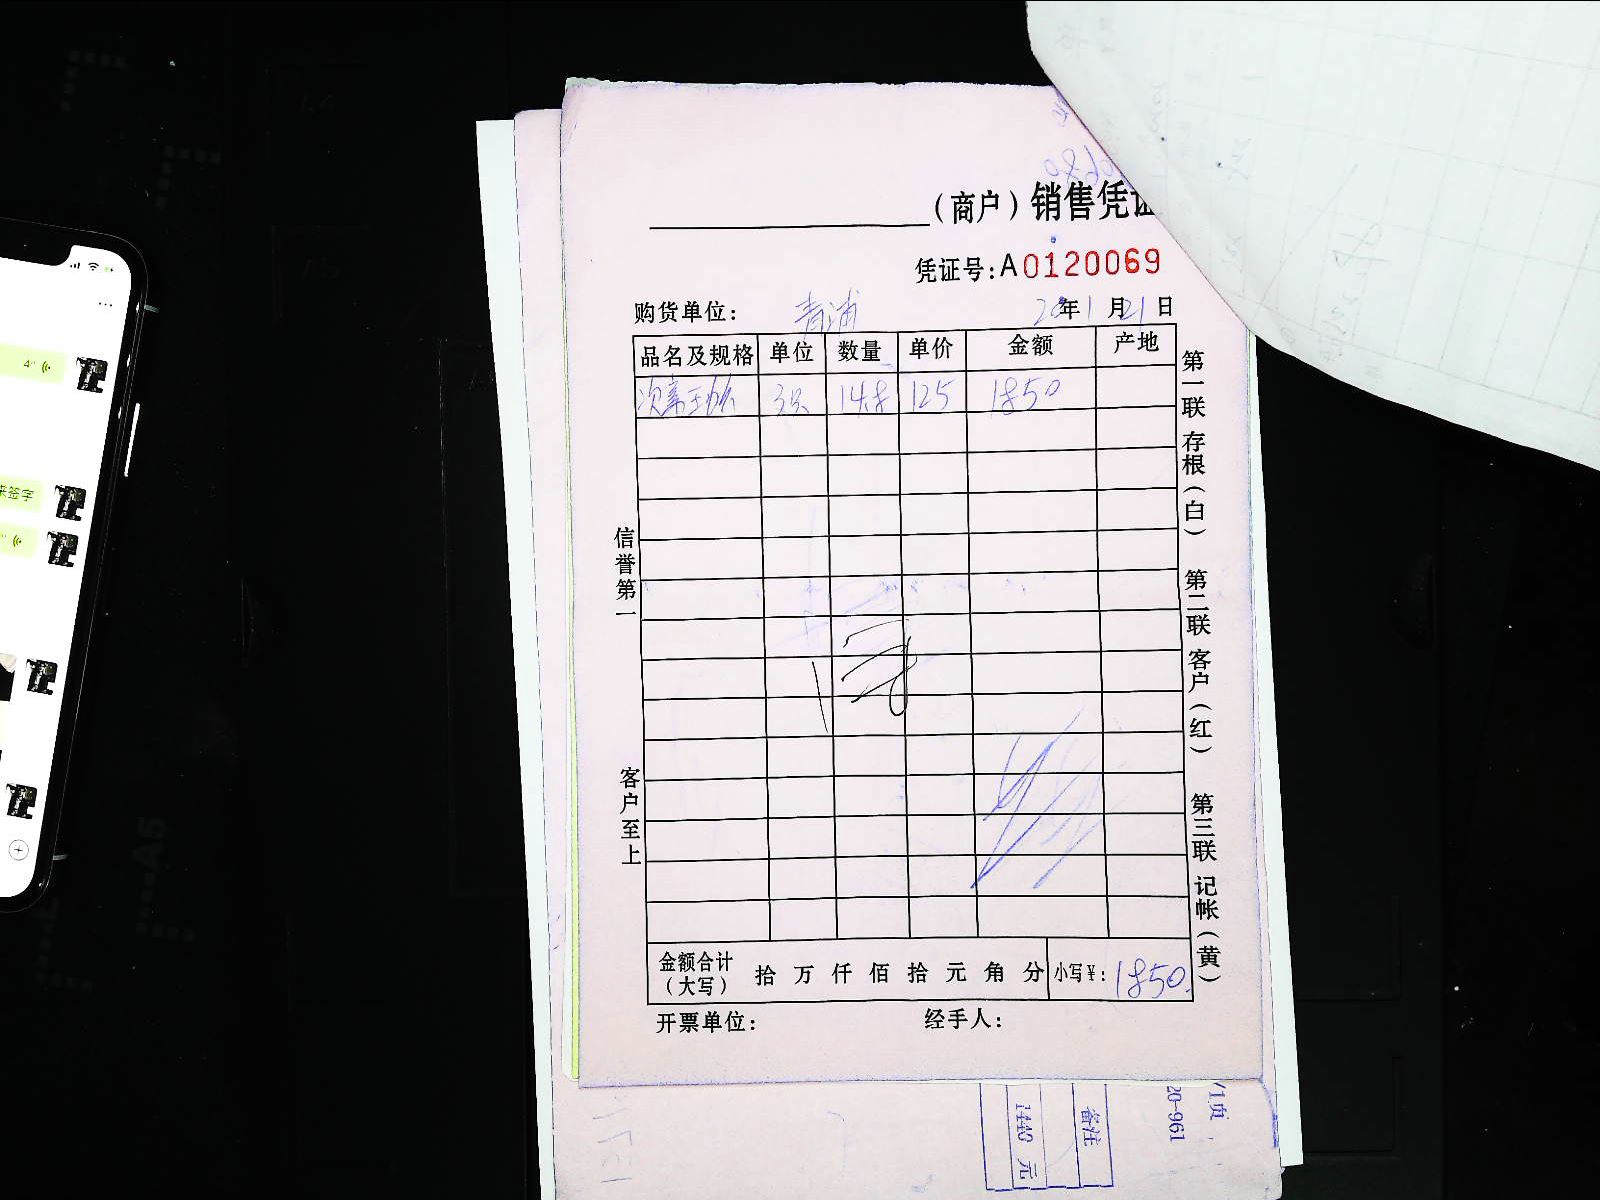 （商户）销售凭证
凭证号：A0120069
购货单位：青浦 20年1月21日
品名及规格 单位 数量 单价 金额 产地
14.8 125 1850
信誉第一
客户至上
第一联 存根（白） 第二联 客户（红） 第三联 记帐（黄）
金额合计（大写） 拾 万 仟 佰 拾 元 角 分 小写￥：1850.
开票单位： 经手人：
/1页
20-961
备注
1440 元
4"
来签字